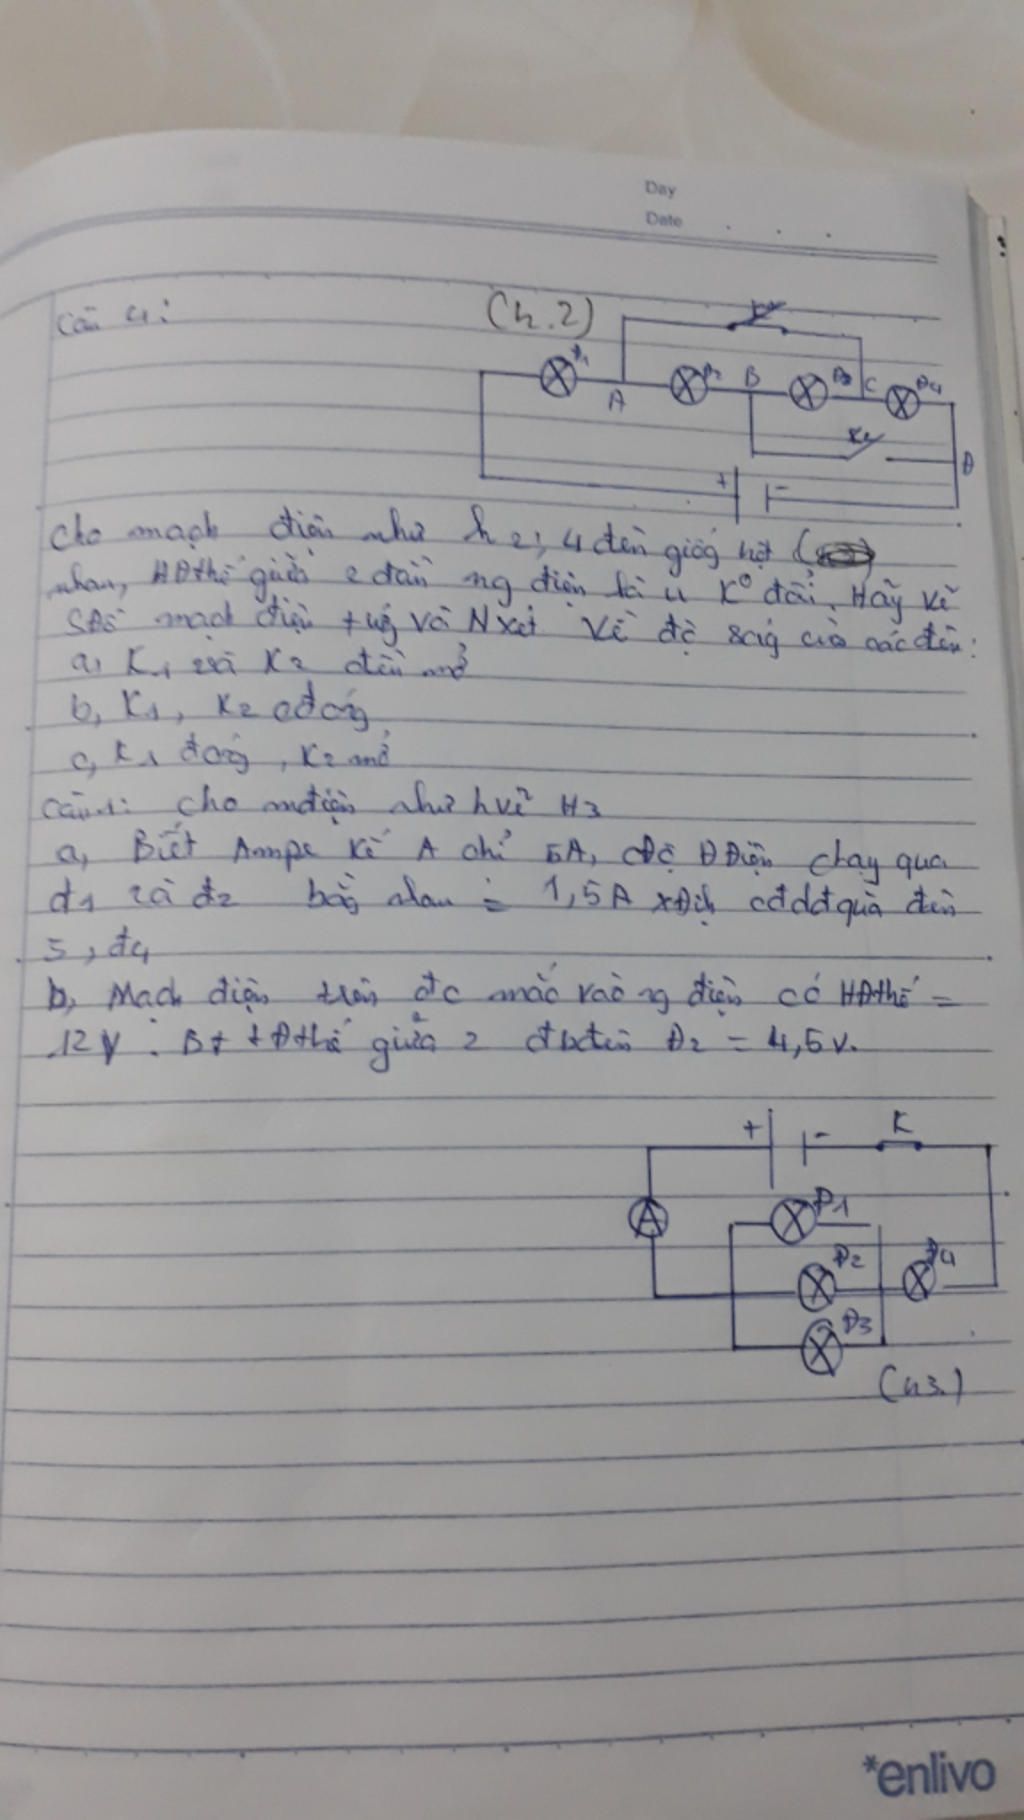 Day
Date
Câu 4:
(h.2)
K1
Đ1
Đ2
B
Đ3
C
Đ4
A
K2
Đ
+
-
Cho mạch điện như h2, 4 đèn giốg hệt
nhau, HĐthế giữa 2 đầu ng điện là U K° đổi. Hãy vẽ
SĐồ mạch điện tứg và Nxét về độ ság của các đèn:
a, K1 và K2 đều mở
b, K1, K2 cđóg
c, K1 đóg, K2 mở
Cho mđiện như hvẽ H3
a, Biết Ampe kế A chỉ 5A, cđộ DĐiện chạy qua
đ1 và đ2 bằg nhau = 1,5A xĐịh cđdđ qua đèn
3, đ4
b, Mạch điện trên đc mắc vào ng điện có HĐthế =
12V. Bt HĐthế giữa 2 đ đèn Đ2 = 4,5V.
+
-
K
A
Đ1
Đ2
Đ4
Đ3
(h3.)
*enlivo